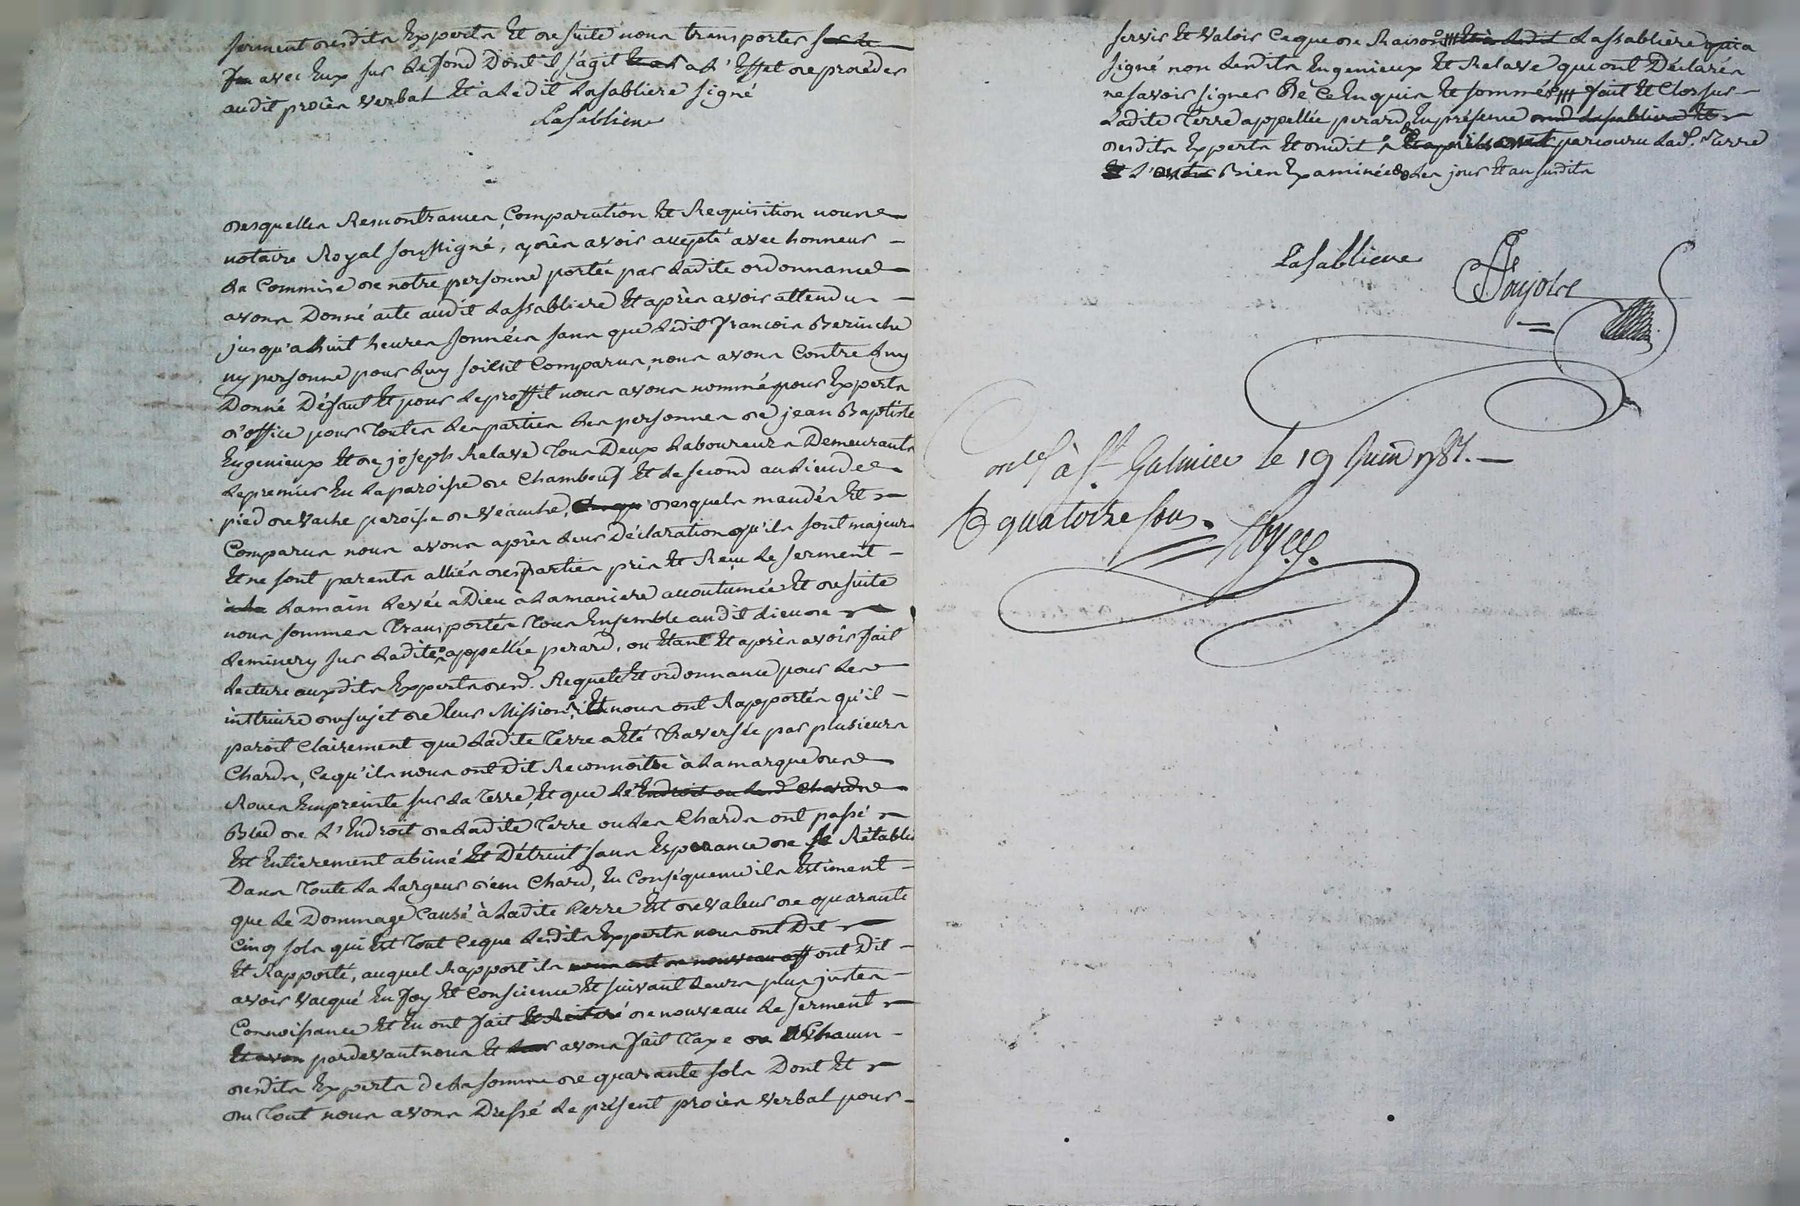 serment desdits Experts Et de suite nous transporter sur le
fon avec Eux sur le fond Dont il s'agit a L'Effet de proceder
audit procès verbal Et a Ledit Lasabliere signé
Lasabliere
desquelles Remontrances, Comparution Et Requisition nous
notaire Royal soussigné, après avoir accepté avec honneur
La Commise de notre personne portée par Ladite ordonnance
avons Donné acte audit Lassabliere Et après avoir attendu
jusqu'a huit heures sonnées sans que Ledit francois Berinche
ny personne pour Luy soit Comparus, nous avons Contre Luy
Donné Défaut Et pour Le proffit nous avons nommé pour Experts
d'office pour Toutes Les parties Les personnes de jean Baptiste
Engenieux Et de joseph Relave Tous Deux Laboureurs Demeurants
Le premier En La paroisse de Chambeuf Et Le second au Lieu de
pied de vache paroisse de veauche, desquels mandés Et
Comparus nous avons après Leur Déclaration qu'ils sont majeurs
Et ne sont parents alliés des parties pris Et Reçu Le serment
à la La main Levée a Dieu à La maniere accoutumée Et de suite
nous sommes Transportés Tous Ensemble audit Lieu de
Leminery sur Ladite appellée perard, ou Etant Et après avoir fait
Lecture auxdits Experts desd. Requete Et ordonnance pour Les
instruire du sujet de Leur Mission, Ils nous ont Rapportés qu'il
paroit Clairement que Ladite Terre a Eté Traversée par plusieurs
Chards, Ce qu'ils nous ont dit Reconnoitre à La marque des
Roues Empreinte sur La Terre, Et que Le Endroit ou Lesd Chards
Bled de L'Endroit de Ladite Terre ou Les Chards ont passé
Est Entierement abimé Et Détruit sans Esperance de se Rétablir
Dans Toute La Largeur d'un Chard, En Conséquence ils Estiment
que Le Dommage Causé à Ladite Terre Est de valeur de quarante
Cinq sols qui Est Tout Ceque Lesdits Experts nous ont Dit
Et Rapporté, auquel Rapport ils nous ont de nouveau aff ont Dit
avoir vacqué En foy Et Conscience Et suivant Leurs plus justes
Connoissance Et En ont fait Et Reiteré de nouveau Le serment
Et avons pardevant nous Et avons fait Taxe a Chacun
desdits Experts de La somme de quarante sols Dont Et
du Tout nous avons Dressé Le présent procès verbal pour
servir Et valoir Ceque de Raison Lassabliere qui a
signé non Lesdits Engenieux Et Relave qui ont Déclarés
ne savoir signer De Ce Enquis Et sommés fait Et Clos sur
Ladite Terre appellée perard En présence dud Lasabliere Et
desdits Experts Et dudit parcouru Lad. Terre
Et L'avoir Bien Examinée Les jour Et an susdits
Lasabliere
Poujolr
Con.lé à St Galmier le 19 Juin 1781.
R quatorze sous.